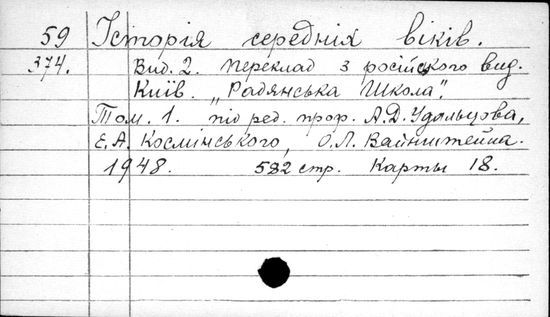 59 Історія середніх віків.
374. Вид. 2. Переклад з російського вид.
Київ. „Радянська Школа".
Том. 1. під ред. проф. А.Д. Удальцова,
Е.А. Космінського, О.Л. Вайнштейна.
1948. 582 стр. Карты 18.